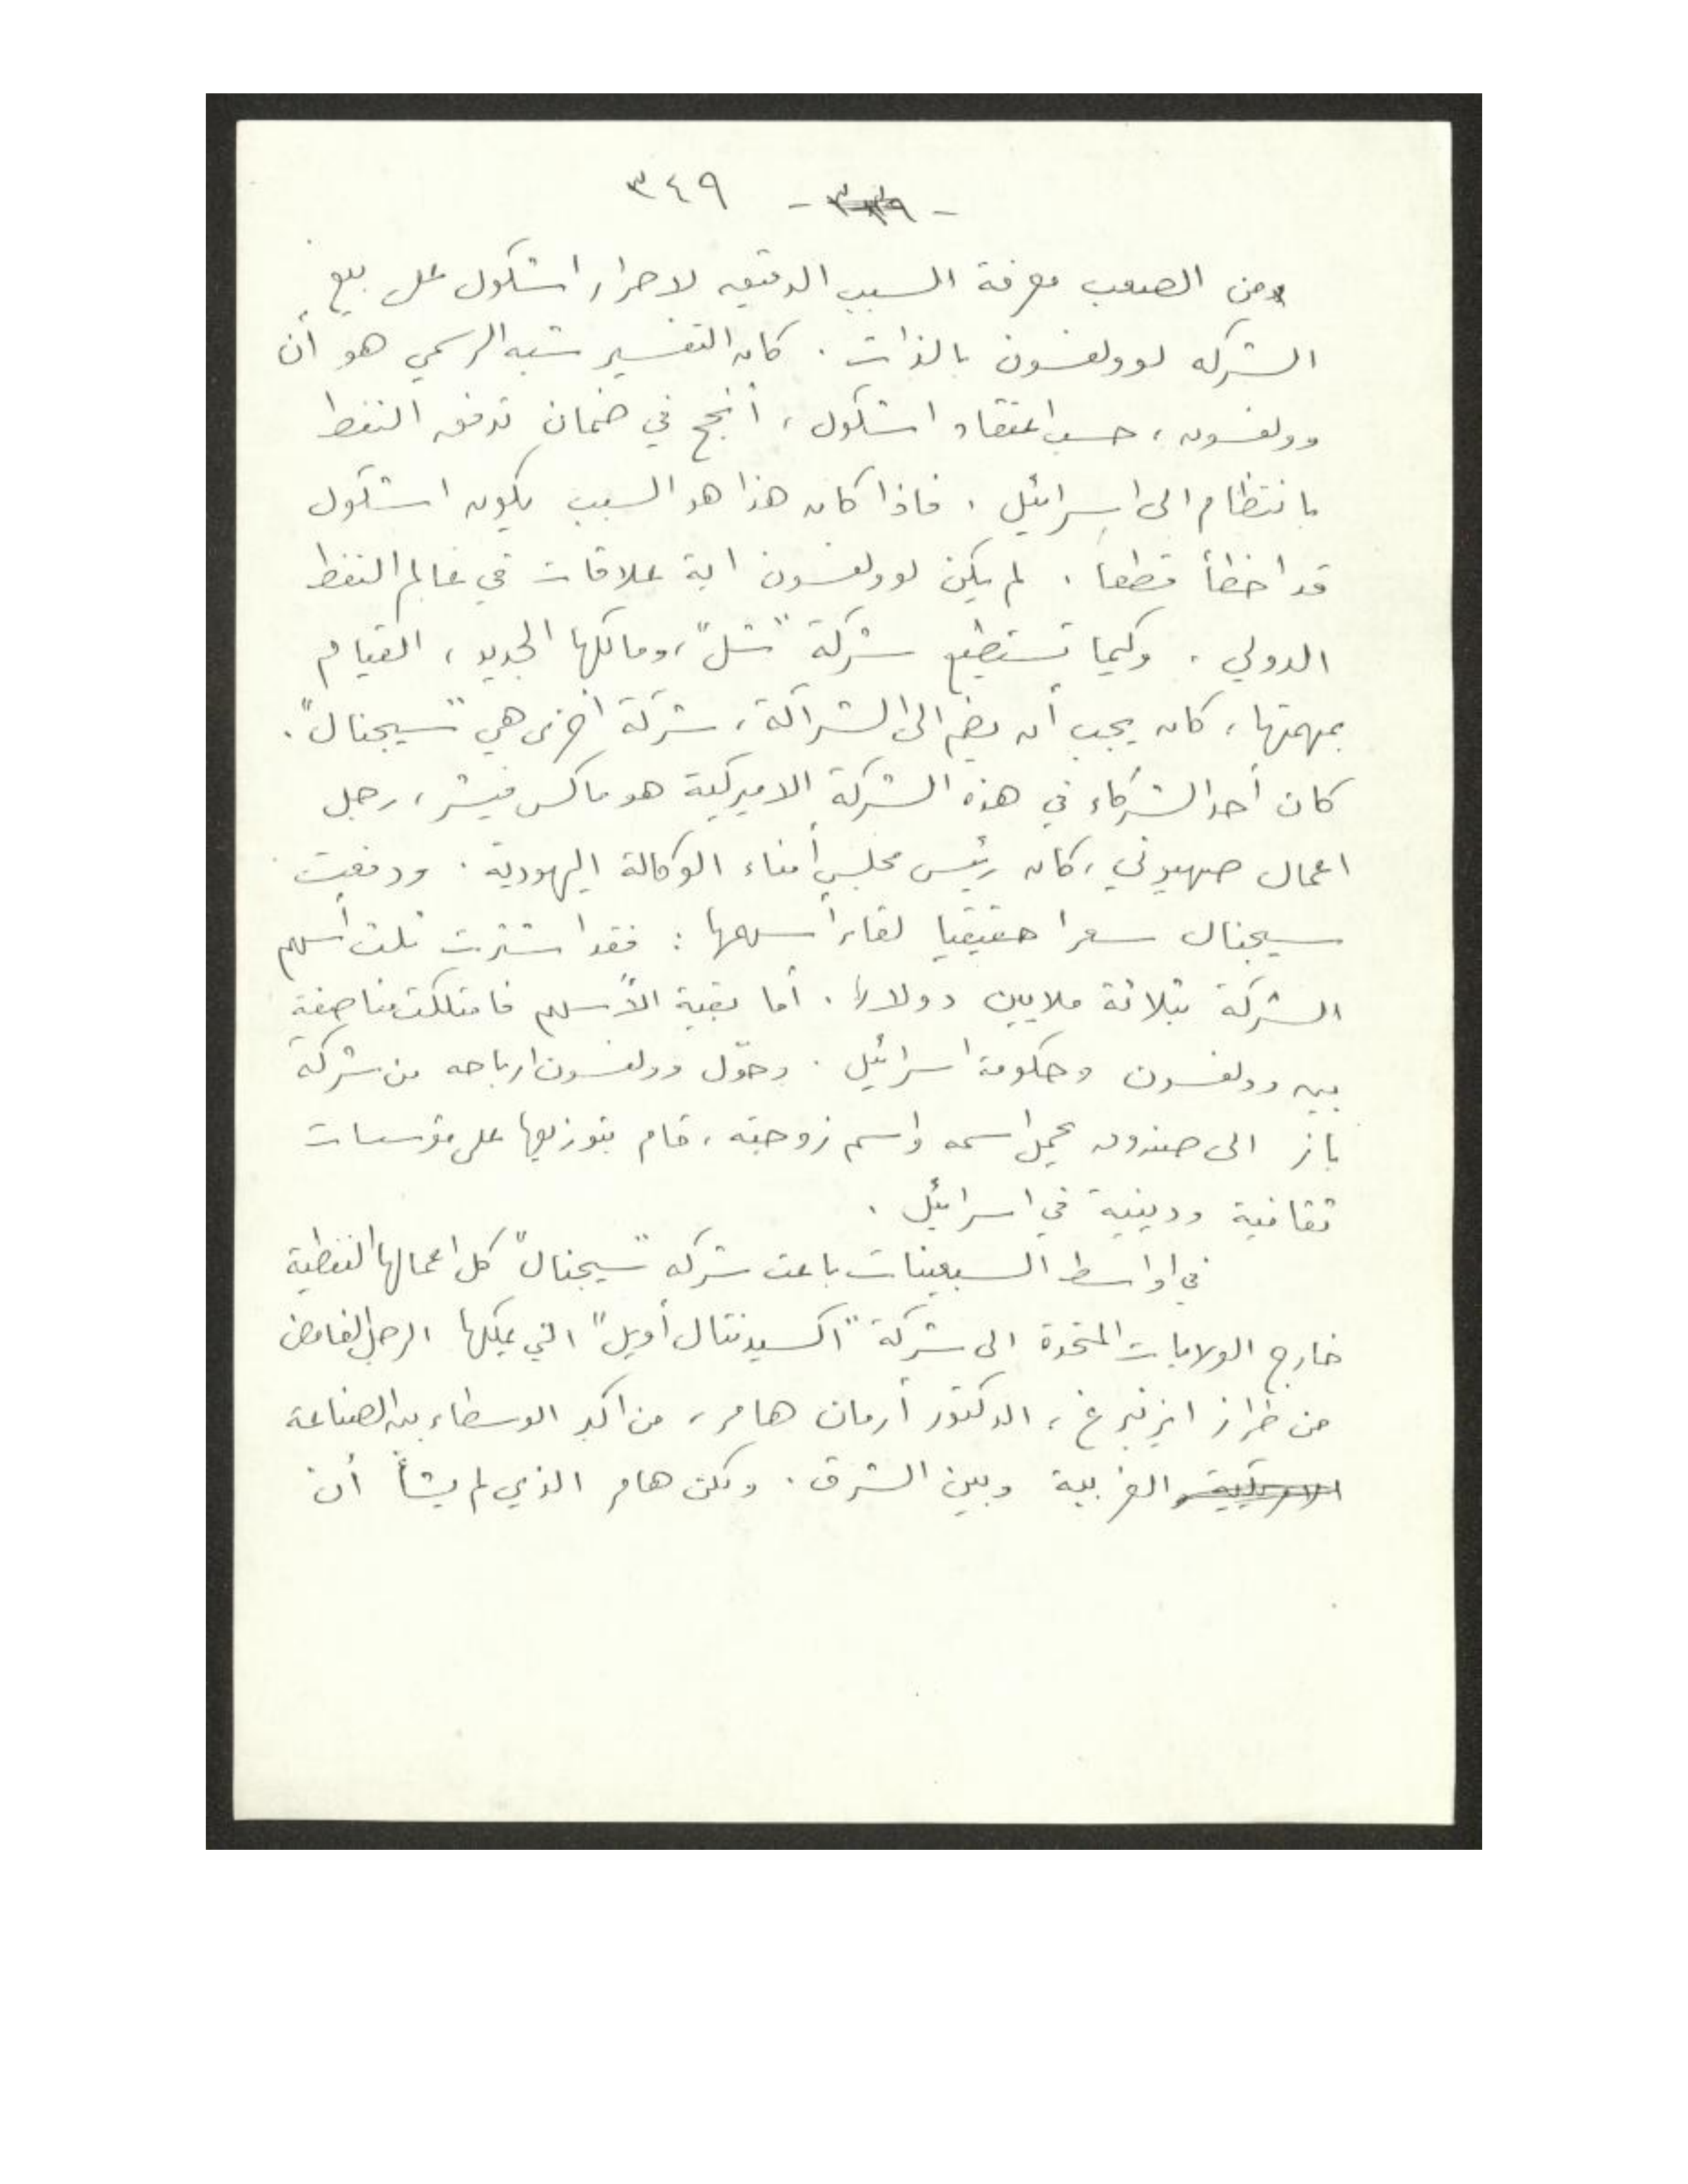 - ٣٣٩ - ٣٤٩
ومن الصعب معرفة السبب الدقيق لاصرار اشكول على بيع
الشركه لوولفسون بالذات . كان التفسير شبه الرسمي هو أن
وولفسون ، حسب اعتقاد اشكول ، أنجح في ضمان تدفق النفط
بانتظام الى اسرائيل . فاذا كان هذا هو السبب يكون اشكول
قد اخطأ قطعاً . لم يكن لوولفسون اية علاقات في عالم النفط
الدولي . وكيما تستطيع شركة "شل" ، ومالكها الجديد ، القيام
بمهمتها ، كان يجب أن يضم الى الشراكة ، شركة أخرى هي "سيجنال" .
كان أحد الشركاء في هذه الشركة الاميركية هو ماكس فيشر ، رجل
اعمال صهيوني ، كان رئيس مجلس أمناء الوكالة اليهودية . ودفعت
سيجنال سعرا حقيقيا لقاء أسهمها : فقد اشترت ثلث أسهم
الشركة بثلاثة ملايين دولار . أما بقية الأسهم فامتلكت مناصفة
بين وولفسون وحكومة اسرائيل . وحوّل وولفسون ارباحه من شركة
باز الى صندوق يحمل اسمه واسم زوجته ، قام بتوزيعها على مؤسسات
ثقافية ودينية في اسرائيل .
في اواسط السبعينات باعت شركه "سيجنال" كل اعمالها النفطية
خارج الولايات المتحدة الى شركة "اكسيدنتال أويل" التي يملكها الرجل الغامض
من طراز ايزنبرغ ، الدكتور أرمان هامر ، من اكبر الوسطاء بين الصناعة
الاميركية الغربية وبين الشرق . ولكن هامر الذي لم يشأ أن